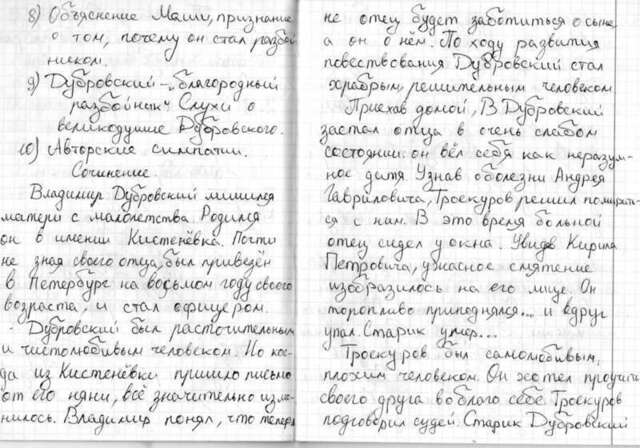 8) Объяснение Маши, признание
о том, почему он стал разбой
ником.
9) Дубровский - „благородный
разбойник" Слухи о
великодушие Дубровского.
10) Авторские симпатии.
Сочинение.
Владимир Дубровский лишился
матери с малолетства. Родился
он в имении Кистенёвка. Почти
не зная своего отца, был привезён
в Петербург на восьмом году своего
возраста, и стал офицером.
- Дубровский был расточительным
и чистолюбивым человеком. Но ког-
да из Кистенёвки пришло письмо
от его няни, всё значительно изме-
нилось. Владимир понял, что теперь
не отец будет заботиться о сыне
а он о нём. По ходу развития
повествования Дубровский стал
храбрым, решительным человеком
Приехав домой, В Дубровский
застал отца в очень слабом
состоянии. он вёл себя как неразум-
ное дитя Узнав о болезни Андрея
Гавриловича, Троекуров решил помирить-
ся с ним. В это время больной
отец сидел у окна. Увидев Кирила
Петровича, ужасное смятение
изобразилось на его лице. Он
торопливо приподнялся... и вдруг
упал. Старик умер...
Троекуров был самолюбивым,
плохим человеком. Он хотел проучить
своего друга во благо себе Троекуров
подговорил судей. Старик Дубровский